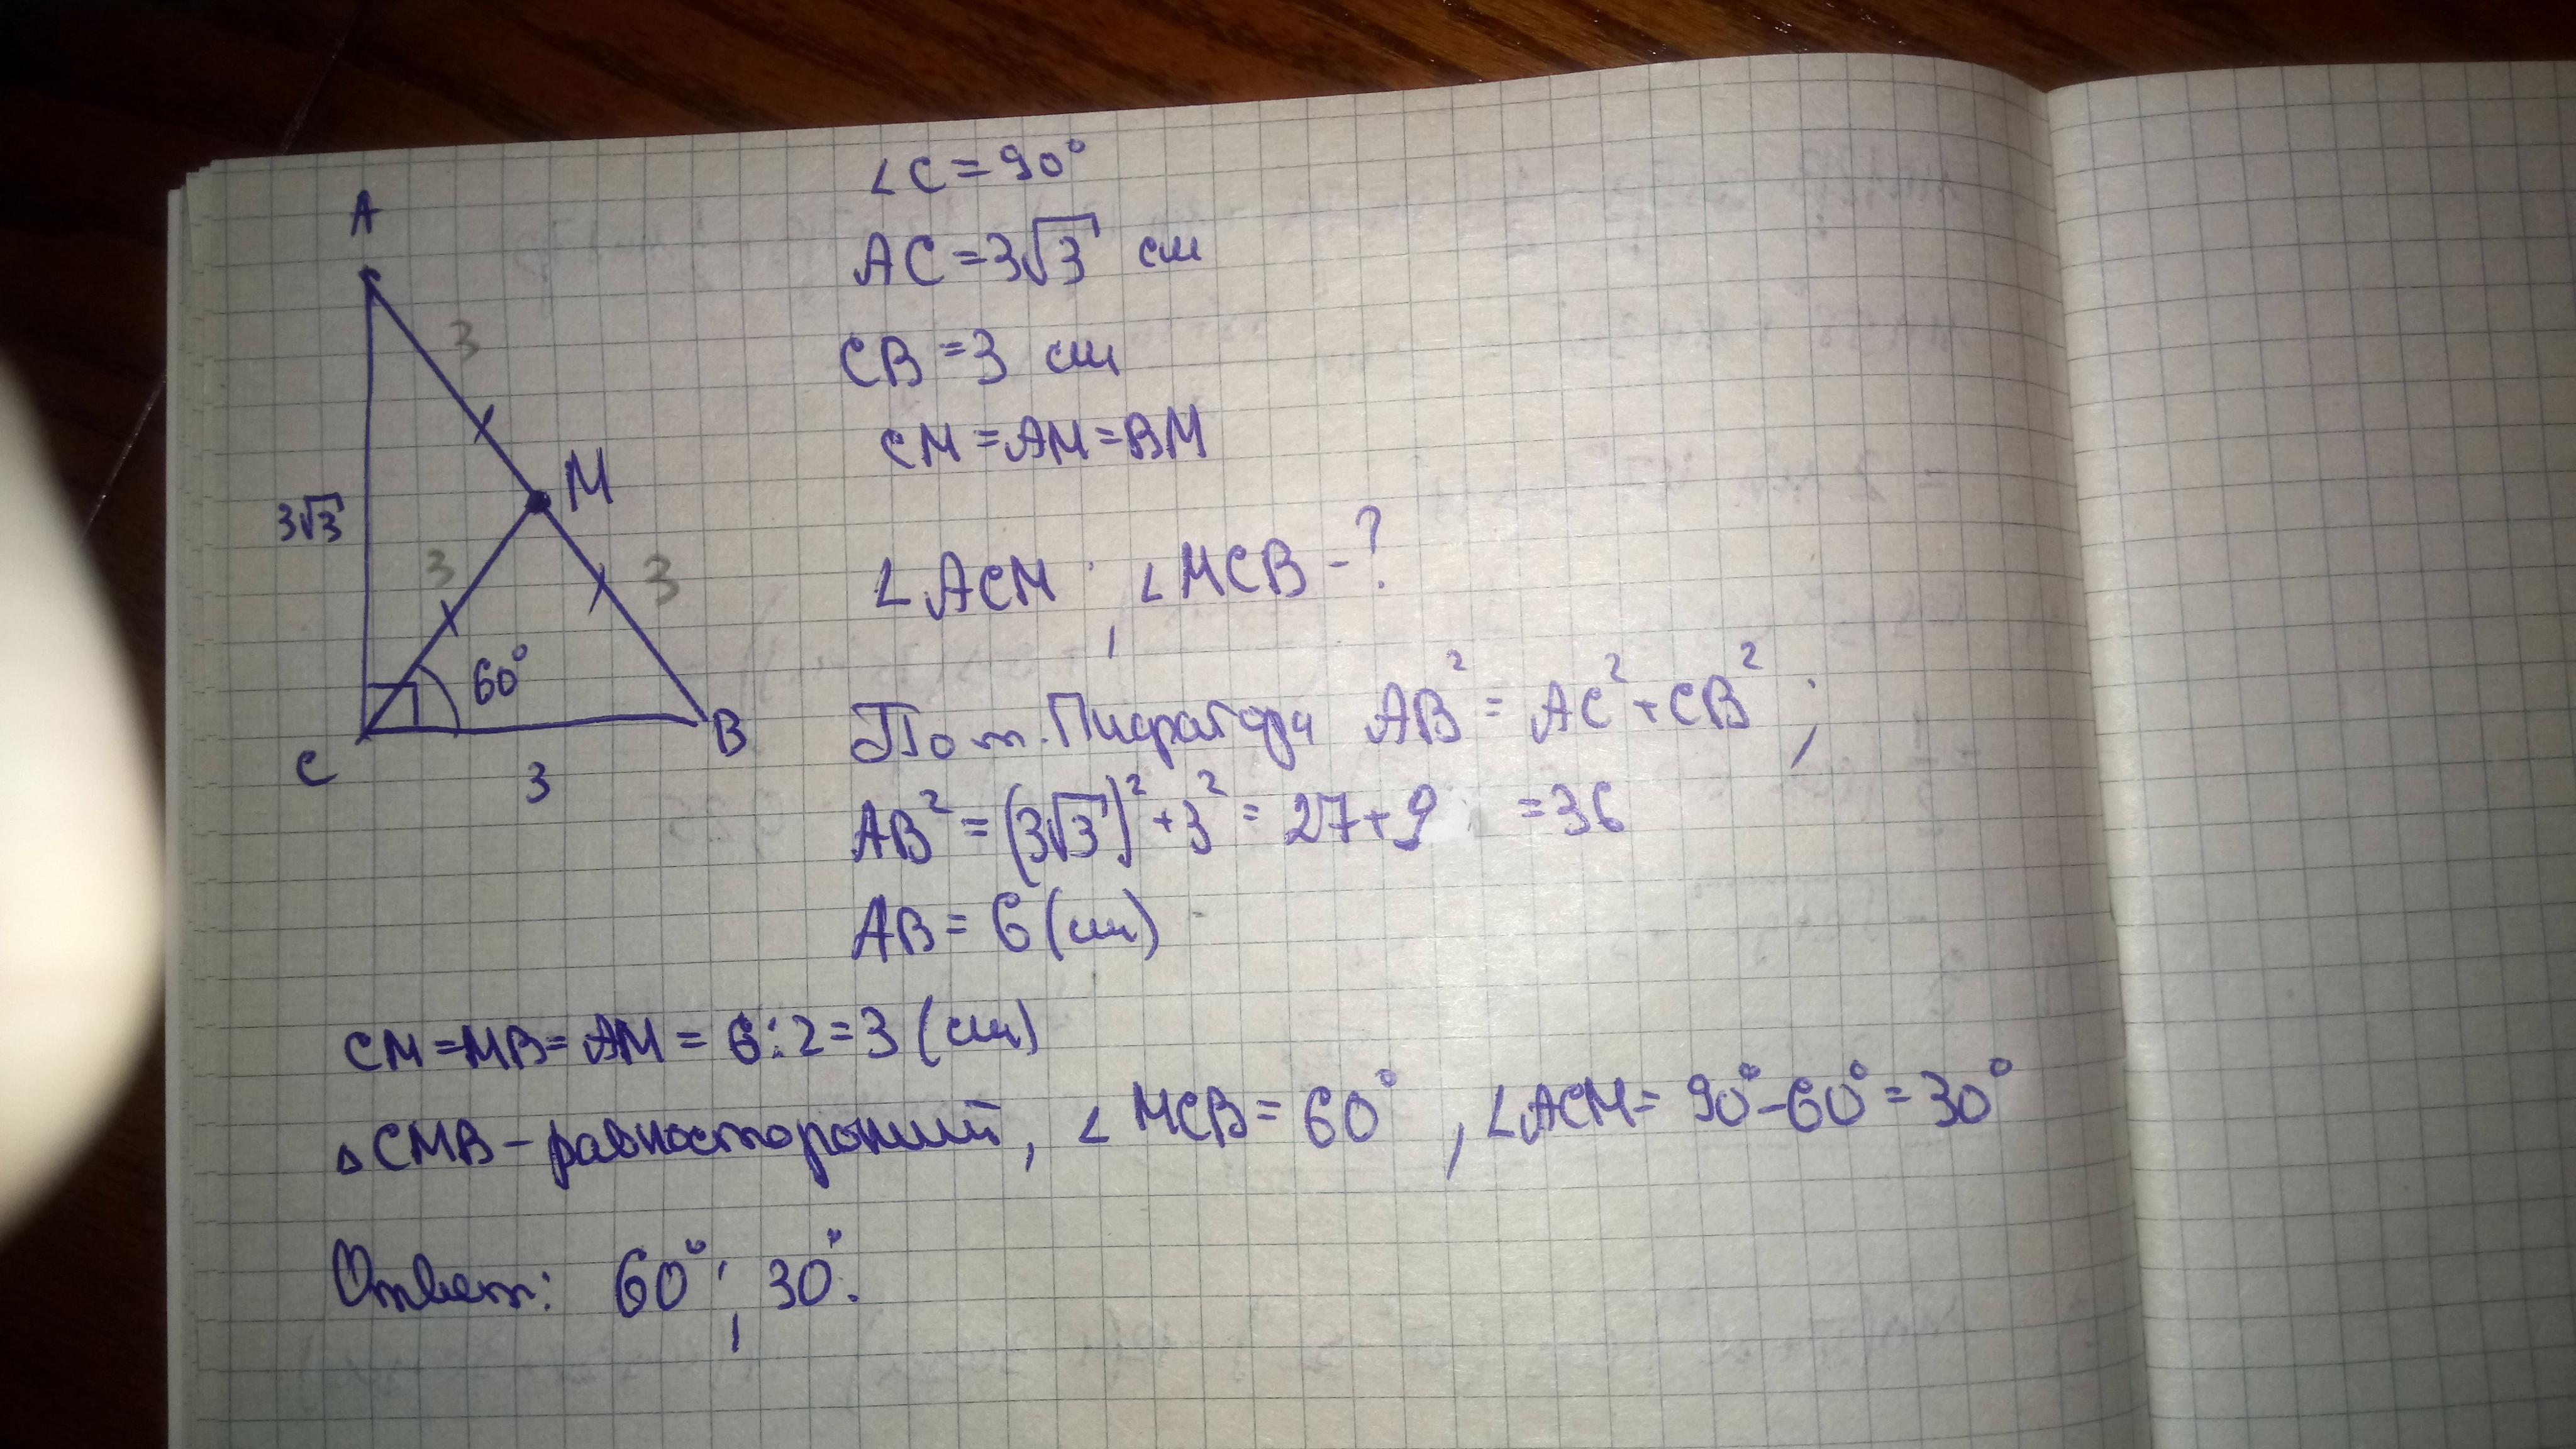 ∠C = 90°
A
AC = 3√3 см
3
CB = 3 см
CM = AM = BM
M
3√3
3
3
∠ACM ; ∠MCB - ?
60°
По т. Пифагора AB² = AC² + CB² ;
C
B
3
AB² = (3√3)² + 3² = 27 + 9 = 36
AB = 6 (см)
CM = MB = AM = 6 : 2 = 3 (см)
△CMB – равносторонний, ∠MCB = 60° , ∠ACM = 90° – 60° = 30°
Ответ: 60° ; 30°.